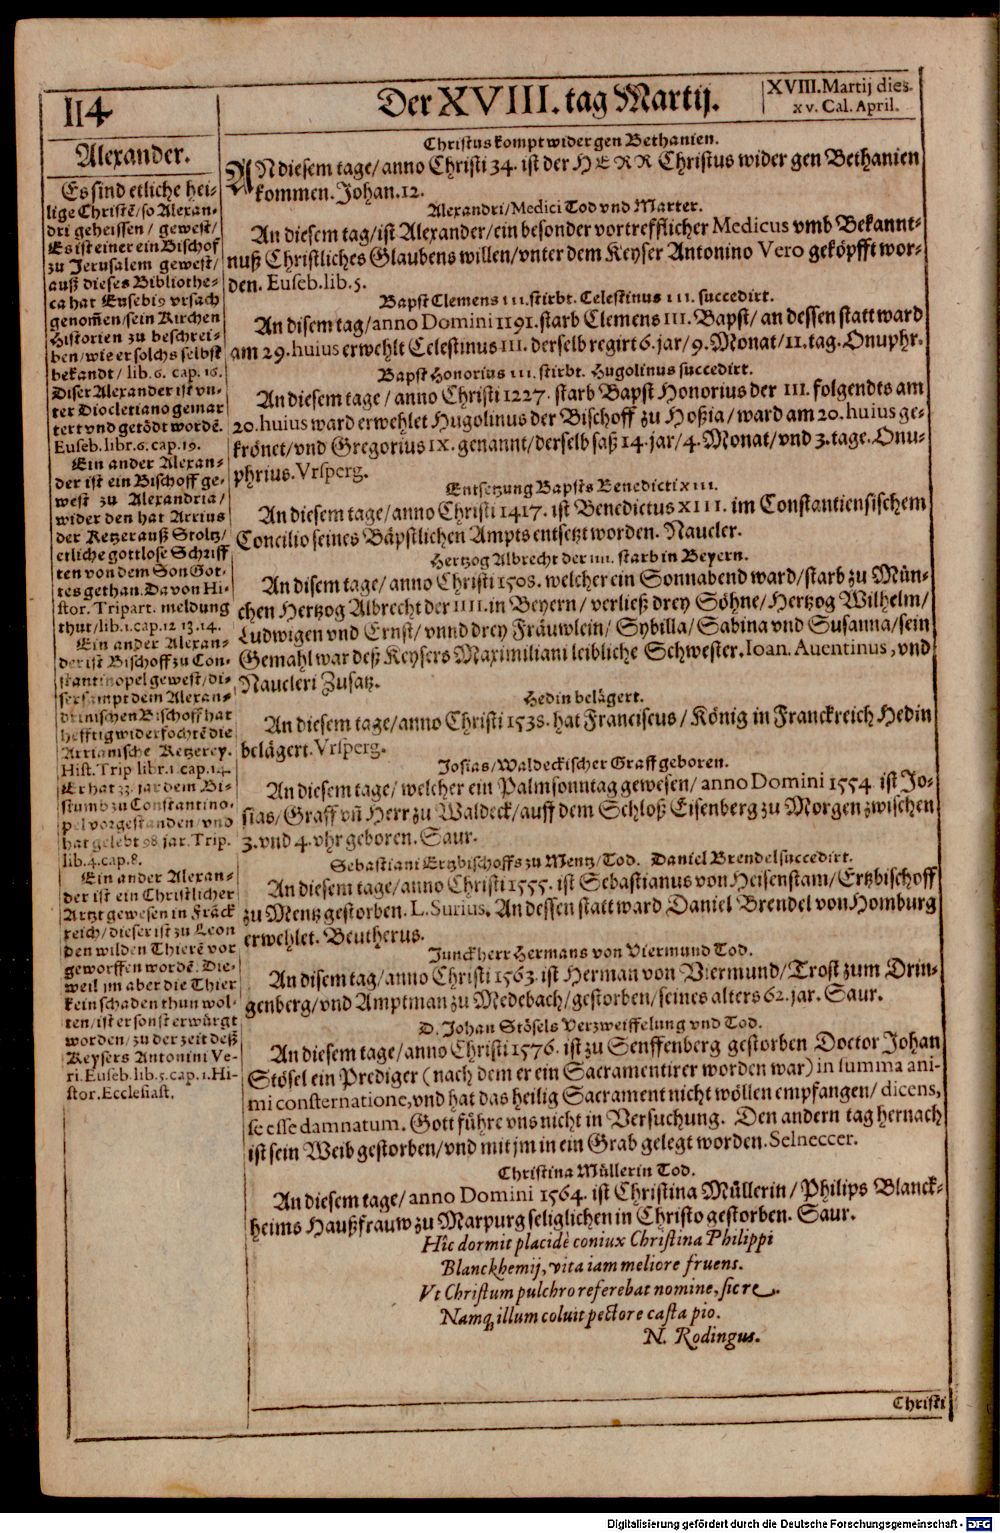 114
Der XVIII. tag Martij.
XVIII. Martij dies.
xv. Cal. April.
Alexander.
Es sind etliche hei-
lige Christē/ so Alexan-
dri geheissen / gewest/
Es ist einer ein Bischof
zu Jerusalem gewest/
auß dieses Bibliothe-
ca hat Eusebi9 vrsach
genom̄en/ sein Kirchen
Historien zu beschrei-
ben/ wie er solchs selbst
bekandt / lib. 6. cap. 16.
Diser Alexander ist vn-
ter Diocletiano gemar
tert vnd getödt wordē.
Euseb. libr. 6. cap. 19.
Ein ander Alexan-
der ist ein Bischoff ge-
west zu Alexandria/
wider den hat Arrius
der Ketzer auß Stoltz/
etliche gottlose Schriff
ten von dem Son Got-
tes gethan. Da von Hi-
stor. Tripart. meldung
thut/ lib. 1. cap. 12 13. 14.
Ein ander Alexan-
der ist Bischoff zu Con-
stantinopel gewest/ di-
ser sampt dem Alexan-
drinischen Bischoff hat
hefftig widerfochtē die
Arrianische Ketzerey.
Hist. Trip libr. 1. cap. 14.
Er hat 23. jar dem Bi-
stumb zu Constantino-
pel vorgestanden/ vnd
hat gelebt 98 jar. Trip.
lib. 4. cap. 8.
Ein ander Alexan-
der ist ein Christlicher
Artzt gewesen in Frāck
reich/ dieser ist zu Leon
den wilden Thierē vor
geworffen wordē. Die-
weil jm aber die Thier
kein schaden thun wol-
ten/ ist er sonst erwürgt
worden/ zu der zeit deß
Keysers Antonini Ve-
ri. Euseb. lib. 5. cap. 1. Hi-
stor. Ecclesiast.
Christus kompt wider gen Bethanien.
AN diesem tage/ anno Christi 34. ist der HERR Christus wider gen Bethanien
kommen. Johan. 12.
Alexandri/ Medici Tod vnd Marter.
An diesem tag/ ist Alexander/ ein besonder vortrefflicher Medicus vmb Bekannt-
nuß Christliches Glaubens willen/ vnter dem Keyser Antonino Vero geköpfft wor-
den. Euseb. lib. 5.
Bapst Clemens III. stirbt. Celestinus III. succedirt.
An disem tag/ anno Domini 1191. starb Clemens III. Bapst/ an dessen statt ward
am 29. huius erwehlt Celestinus III. derselb regirt 6. jar/ 9. Monat/ 11. tag. Onuphr.
Bapst Honorius III. stirbt. Hugolinus succedirt.
An diesem tage / anno Christi 1227. starb Bapst Honorius der III. folgendts am
20. huius ward erwehlet Hugolinus der Bischoff zu Hoßia/ ward am 20. huius ge-
krönet/ vnd Gregorius IX. genannt/ derselb saß 14. jar/ 4. Monat/ vnd 3. tage. Onu-
phrius. Vrsperg.
Entsetzung Bapsts Benedicti XIII.
An diesem tage/ anno Christi 1417. ist Benedictus XIII. im Constantiensischem
Concilio seines Bäpstlichen Ampts entsetzt worden. Naucler.
Hertzog Albrecht der IIII. starb in Beyern.
An disem tage/ anno Christi 1508. welcher ein Sonnabend ward/ starb zu Mün-
chen Hertzog Albrecht der IIII. in Beyern/ verließ drey Söhne/ Hertzog Wilhelm/
Ludwigen vnd Ernst/ vnnd drey Fräuwlein/ Sybilla/ Sabina vnd Susanna/ sein
Gemahl war deß Keysers Maximiliani leibliche Schwester. Ioan. Auentinus, vnd
Naucleri Zusatz.
Hedin belägert.
An diesem tage/ anno Christi 1538. hat Franciscus / König in Franckreich Hedin
belägert. Vrsperg.
Josias/ Waldeckischer Graff geboren.
An diesem tage/ welcher ein Palmsonntag gewesen/ anno Domini 1554 ist Jo-
sias/ Graff vn̄ Herr zu Waldeck/ auff dem Schloß Eisenberg zu Morgen zwischen
3. vnd 4. vhr geboren. Saur.
Sebastiani Ertzbischoffs zu Mentz/ Tod. Daniel Brendel succedirt.
An diesem tage/ anno Christi 1555. ist Sebastianus von Heisenstam/ Ertzbischoff
zu Mentz gestorben. L. Surius. An dessen statt ward Daniel Brendel von Homburg
erwehlet. Beutherus.
Junckherr Hermans von Viermund Tod.
An disem tag/ anno Christi 1563. ist Herman von Viermund/ Trost zum Drin-
genberg/ vnd Amptman zu Medebach/ gestorben/ seines alters 62. jar. Saur.
D. Johan Stösels Verzweiffelung vnd Tod.
An diesem tage/ anno Christi 1576. ist zu Senffenberg gestorben Doctor Johan
Stösel ein Prediger (nach dem er ein Sacramentirer worden war) in summa ani-
mi consternatione, vnd hat das heilig Sacrament nicht wöllen empfangen/ dicens,
se esse damnatum. Gott führe vns nicht in Versuchung. Den andern tag hernach
ist sein Weib gestorben/ vnd mit jm in ein Grab gelegt worden. Selneccer.
Christina Müllerin Tod.
An diesem tage/ anno Domini 1564. ist Christina Müllerin/ Philips Blanck-
heims Haußfrauw zu Marpurg seliglichen in Christo gestorben. Saur.
Hîc dormit placidè coniux Christina Philippi
Blanckhemij, vita iam meliore fruens.
Vt Christum pulchro referebat nomine, sic re
Namq; illum coluit pectore casta pio.
N. Rodingus.
Christi
Digitalisierung gefördert durch die Deutsche Forschungsgemeinschaft - DFG